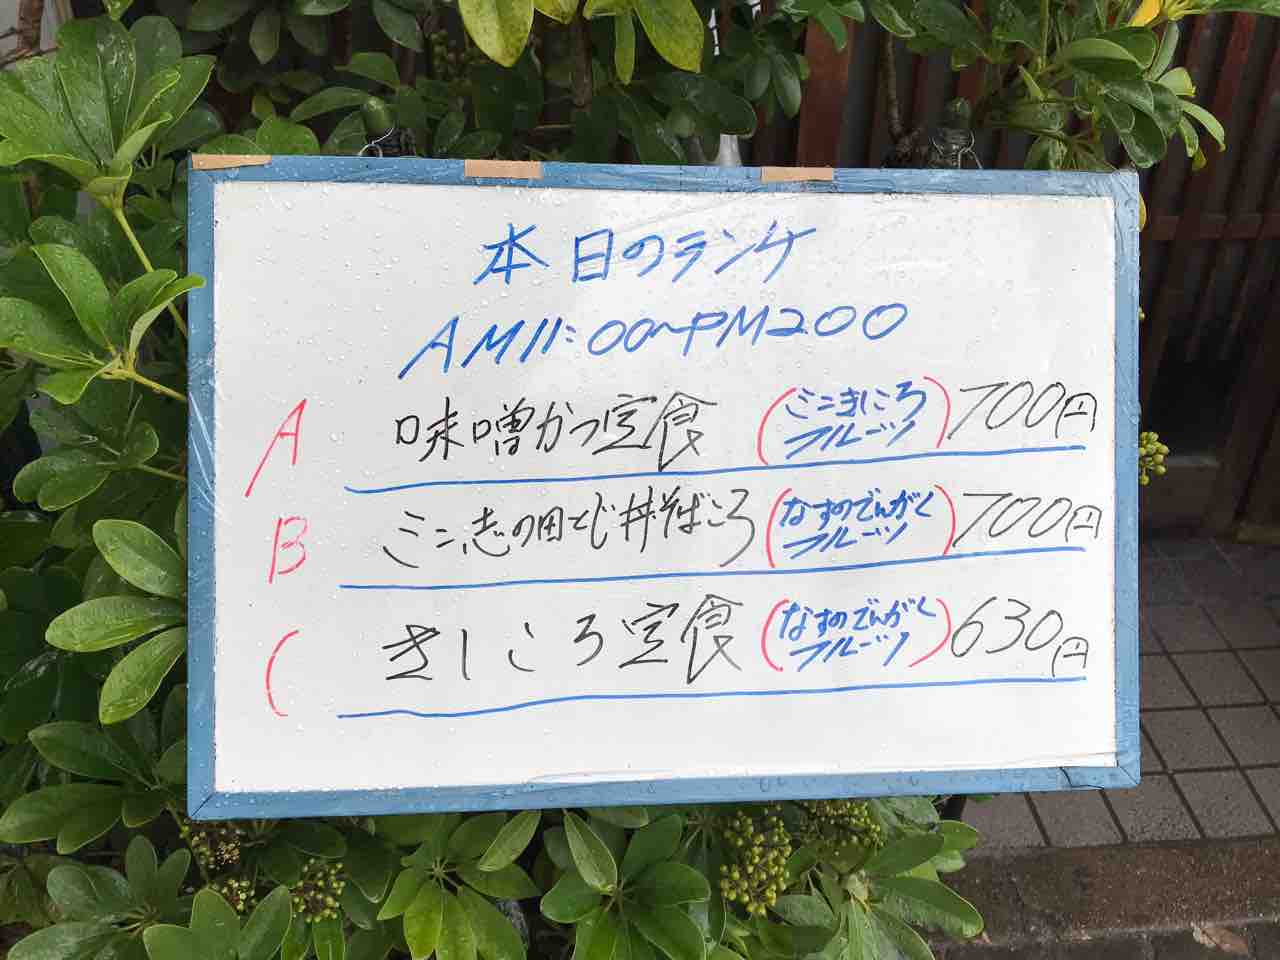 本日のランチ
AM11:00~PM200
A 味噌かつ定食 (ミニきしころ フルーツ) 700円
B ミニ志の田とじ丼そばころ (なすのでんがく フルーツ) 700円
C きしころ定食 (なすのでんがく フルーツ) 630円